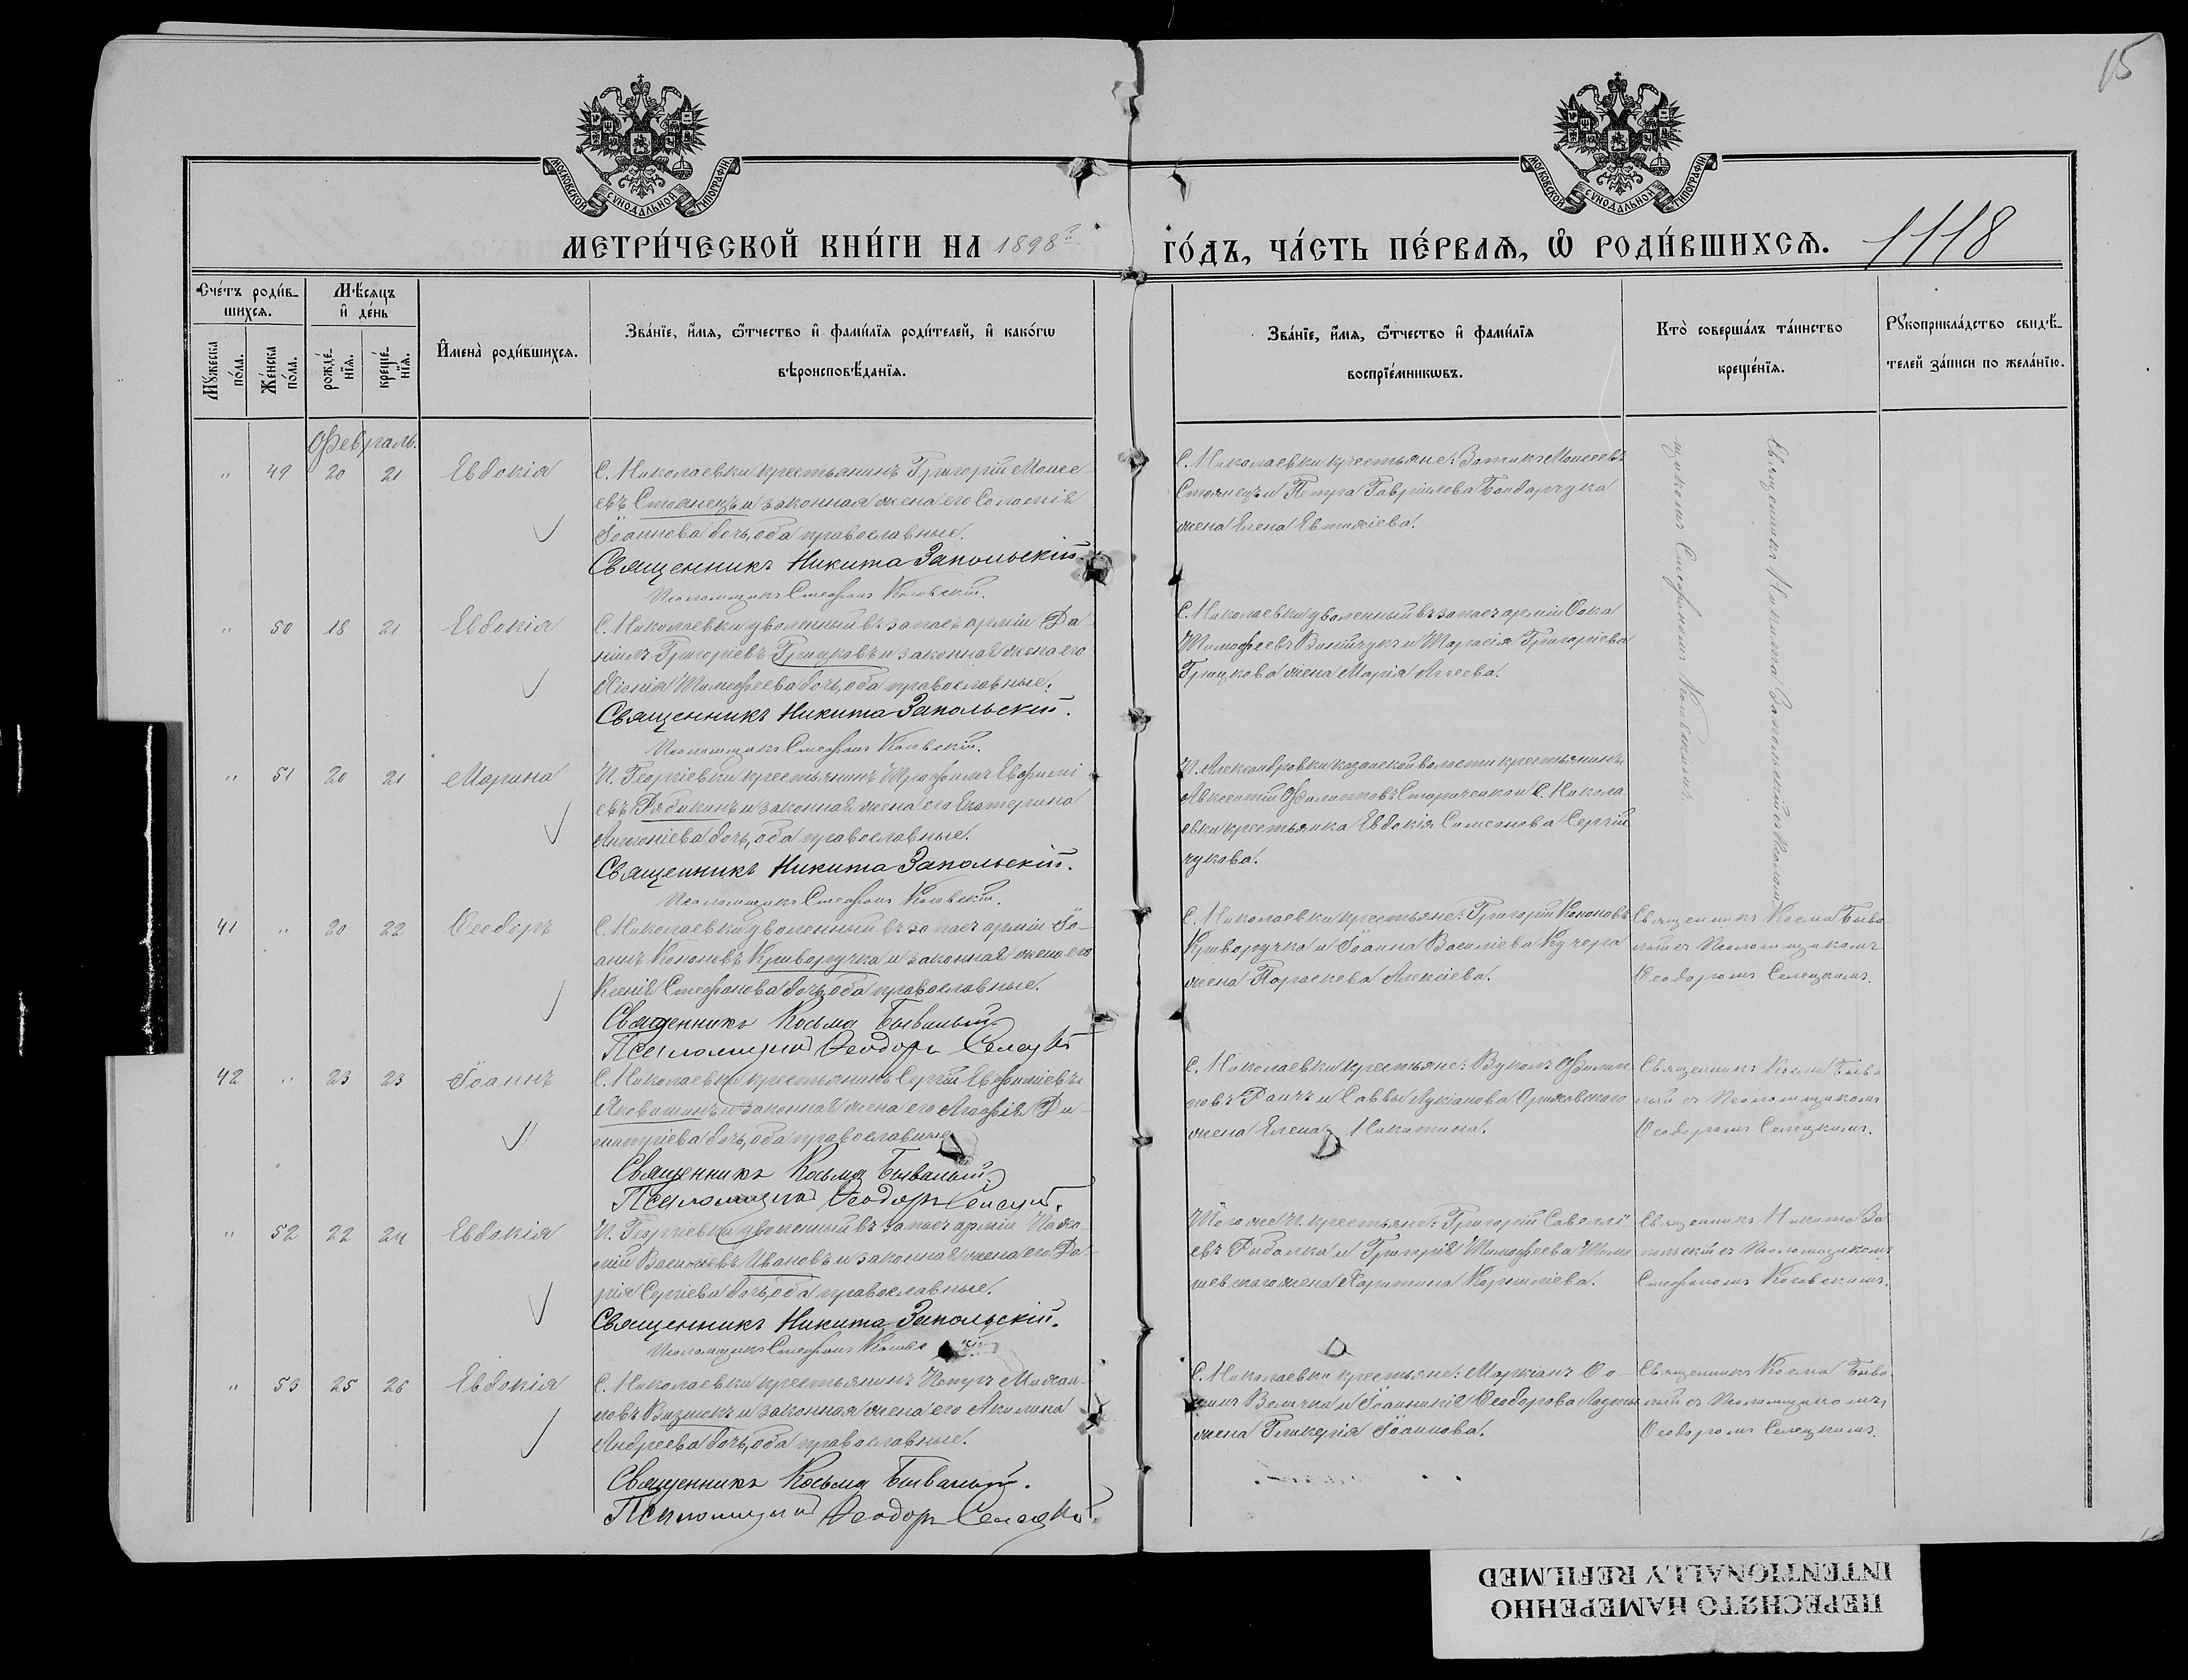 15
МОСКОВСКОЙ СУНОДАЛЬНОЙ ТИПОГРАФІИ
МОСКОВСКОЙ СУНОДАЛЬНОЙ ТИПОГРАФІИ
МЕТРИ́ЧЕСКОЙ КНИ́ГИ НА 1898й
ГО́ДЪ, ЧА́СТЬ ПЕ́РВАѦ, Ѡ҆ РОДИ́ВШИХСѦ. 1118
Сче́тъ роди́в-
шихсѧ.
Мꙋ́жеска по́ла.
Же́нска по́ла.
Мѣ́сѧцъ
и҆ де́нь
рожде́нїѧ.
креще́нїѧ.
И҆мена̀ роди́вшихсѧ.
Зва́нїе, и҆́мѧ, ѻ҆́тчество и҆ фами́лїѧ роди́телей, и҆ како́гѡ
вѣроисповѣ́данїѧ.
Зва́нїе, и҆́мѧ, ѻ҆́тчество и҆ фами́лїѧ
воспрїе́мникѡвъ.
Кто̀ соверша́лъ та́инство
креще́нїѧ.
Рꙋкоприкла́дство свидѣ́-
телей за́писи по жела́нїю.
Февраль.
" 49 20 21 Евдокія
С. Николаевки крестьянинъ Григорій Моисе-
евъ Стоянецъ и законная жена его Соломія
Іоаннова дочь, оба православные.
Священникъ Никита Запольскій.
Псаломщикъ Стефанъ Коговскій.
С. Николаевки крестьяне: Моисеевъ
Стоянецъ и Петра Гаврилова Бондарчука
жена Елена Евтихіева.
Священникъ Никита Запольскій съ Псалом-
щикомъ Стефаномъ Коговскимъ.
" 50 18 21 Евдокія
С. Николаевки уволенный въ запасъ арміи Да-
ніилъ Григоріевъ Грицковъ и законная жена его
Хіонія Тимофеева дочь, оба православные.
Священникъ Никита Запольскій.
Псаломщикъ Стефанъ Коговскій.
С. Николаевки уволенный въ запасъ арміи Фока
Тимофеевъ Винничукъ и Тарасія Григоріева
Грицкова жена Марія Аггеева.
" 51 20 21 Марина
П. Георгіевки крестьянинъ Трофимъ Евфимі-
евъ и законная жена его Екатерина
Антоніева дочь, оба православные.
Священникъ Никита Запольскій.
Псаломщикъ Стефанъ Коговскій.
П. Александровки казанской волости крестьянинъ
Авксентій Филипповъ Стариченко и С. Никола-
евки крестьянка Евдокія Симеонова Сергій-
чукова.
41 " 20 22 Ѳеодоръ
С. Николаевки уволенный въ запасъ арміи Іо-
аннъ Кононовъ Криворучка и законная жена его
Ксенія Стефанова дочь, оба православные.
Священникъ Косьма Бывалый
Псаломщикъ Ѳеодоръ Селецкій
С. Николаевки крестьяне: Григорій Кононовъ
Криворучка и Іоанна Василіева Кучера
жена Параскева Алексіева.
Священникъ Косма Быва-
лый съ Псаломщикомъ
Ѳеодоромъ Селецкимъ.
42 " 23 23 Іоаннъ
С. Николаевки крестьянинъ Сергій Евфиміевъ
Яковишинъ и законная жена его Агафія Ди-
митріева дочь, оба православные.
Священникъ Косьма Бывалый.
Псаломщикъ Ѳеодоръ Селецкій.
С. Николаевки крестьяне: Вуколъ Филип-
повъ Раичъ и Саввы Лукіанова Оржеховскаго
жена Елена Никитина.
Священникъ Косма Быва-
лый съ Псаломщикомъ
Ѳеодоромъ Селецкимъ.
" 52 22 24 Евдокія
П. Георгіевки уволенный въ запасъ арміи
Василіевъ Ивановъ и законная жена его Да-
рія Сергіева дочь, оба православные.
Священникъ Никита Запольскій.
Псаломщикъ Стефанъ
Того же П. крестьяне: Григорій Савеллі-
евъ Рыбалка и Григорія Тимофеева
жена Харитина Корниліева.
Священникъ Никита За-
польскій съ Псаломщикомъ
Стефаномъ Коговскимъ.
" 53 25 26 Евдокія
С. Николаевки крестьянинъ Петръ Михаи-
ловъ Визнюкъ и законная жена его Акилина
Андреева дочь, оба православные.
Священникъ Косьма Бывалый.
Псаломщикъ Ѳеодоръ Селецкій.
С. Николаевки крестьяне: Маркіанъ Ѳо-
минъ Величко и Іоанникія Ѳеодорова
жена Гликерія Іоаннова.
Священникъ Косма Быва-
лый съ Псаломщикомъ
Ѳеодоромъ Селецкимъ.
ПЕРЕСНЯТО НАМЕРЕННО
INTENTIONALLY REFILMED